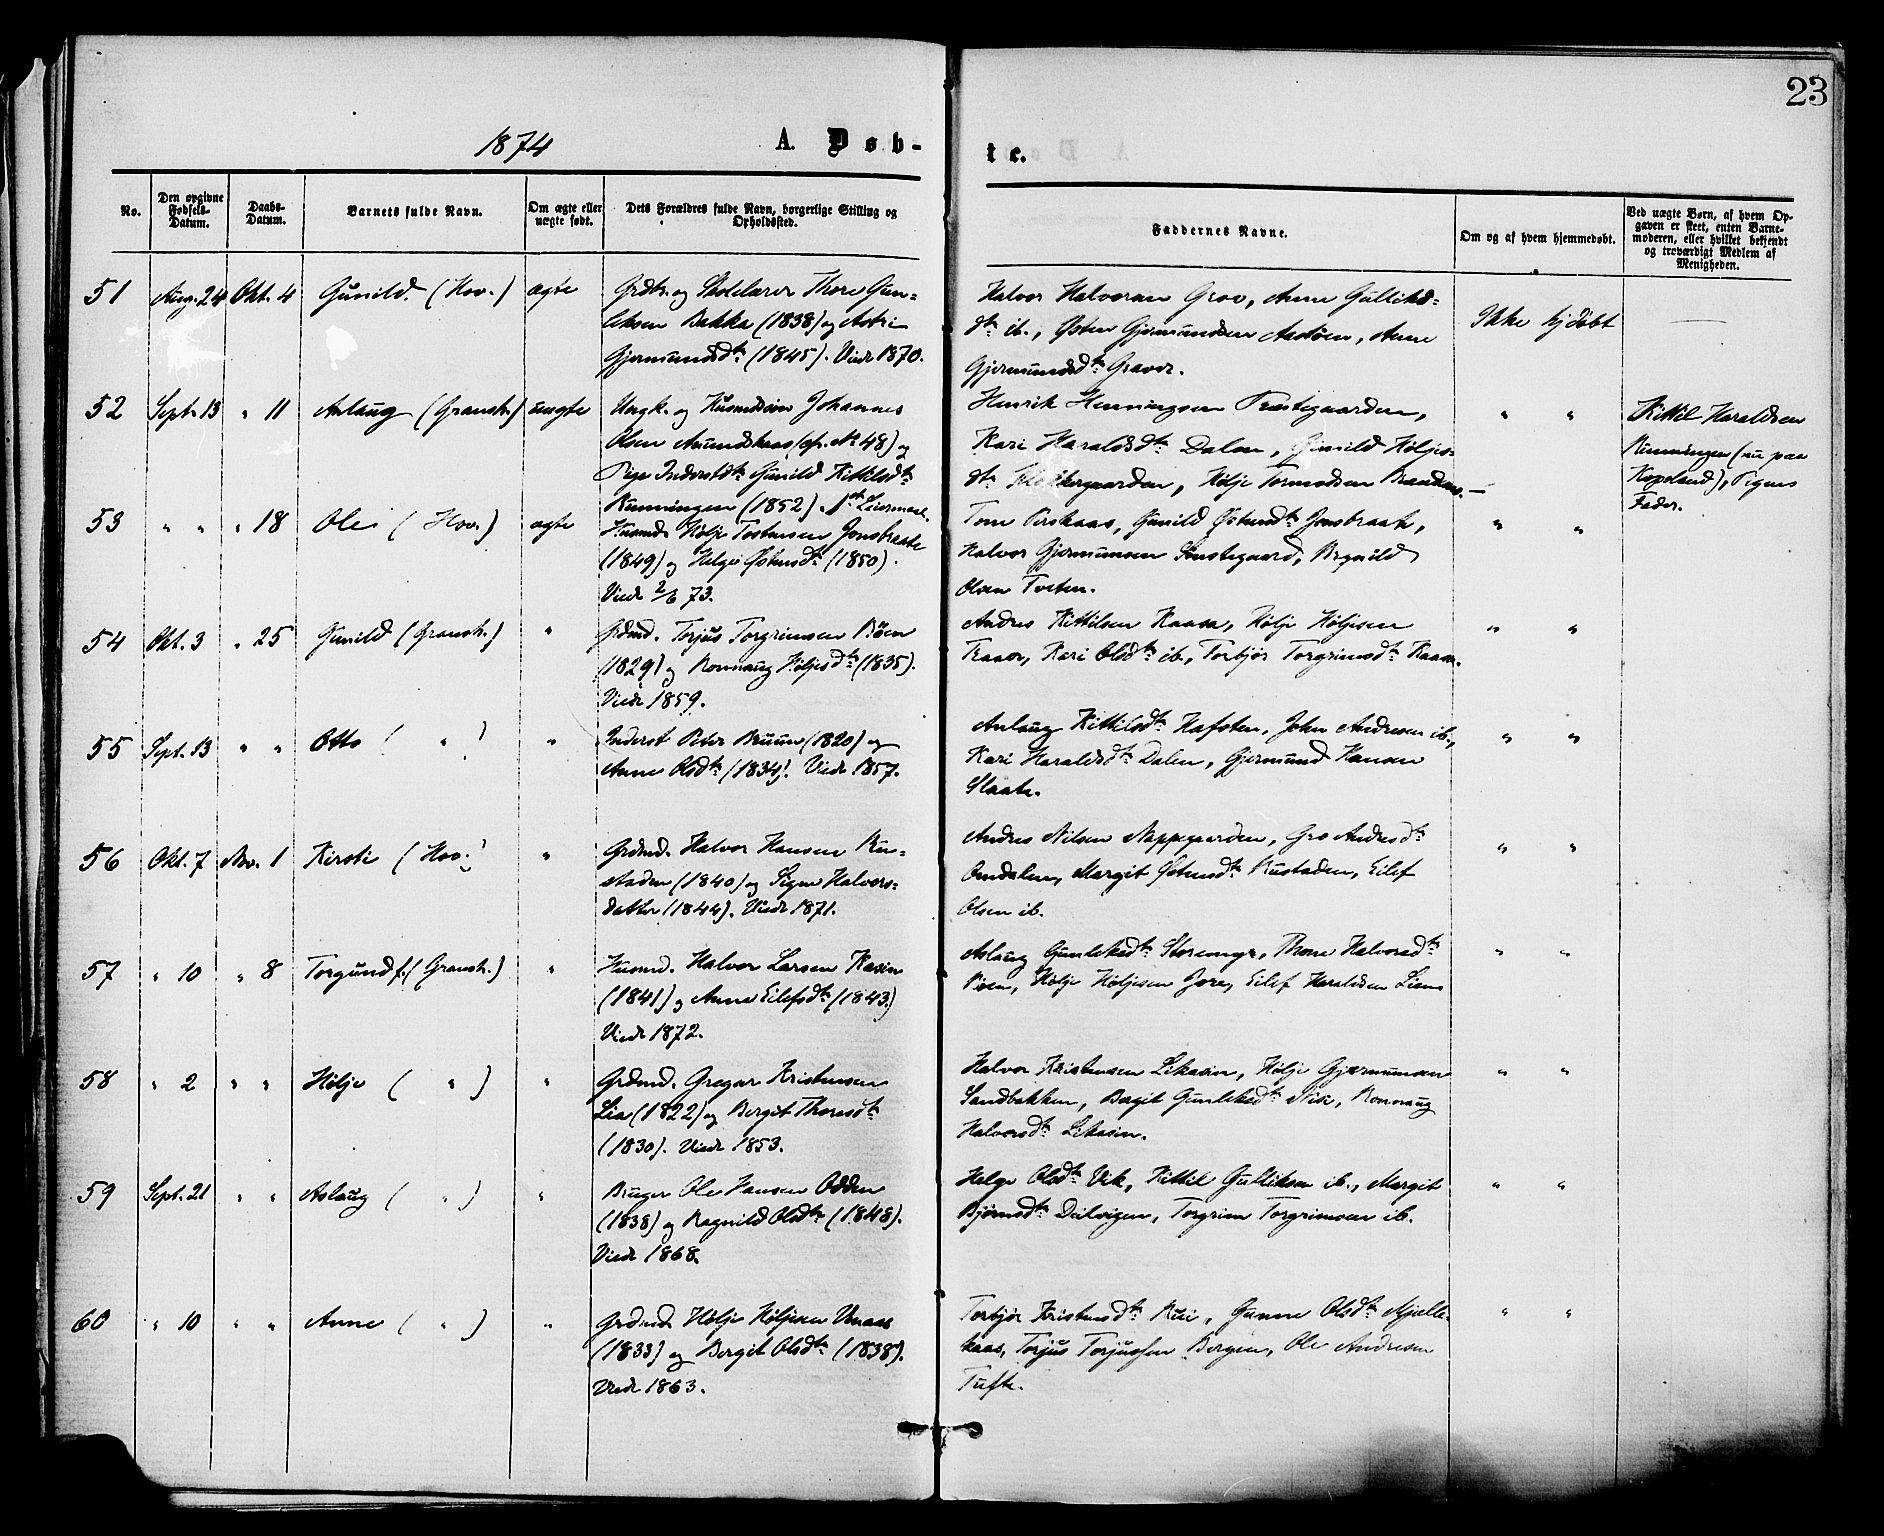 23
1874 A. Døb-
te.
No.
Den opgivne Fødsels-Datum.
Daabs-Datum.
Barnets fulde Navn.
Om ægte eller uægte født.
Dets Forældres fulde Navn, borgerlige Stilling og Opholdssted.
Faddernes Navne.
Om og af hvem hjemmedøbt.
Ved uægte Børn, af hvem Op-
gaven er skeet, enten Barne-
moderen, eller hvilket bekjendt
og troværdigt Medlem af
Menigheden.
51 Aug. 24 Okt. 4 Gunild. (Hov.) ægte
Grdbr. og Skolelærer Thore Gun-
leksen Bakka (1838) og Astri
Gjermundsdtr (1845). Viede 1870.
Halvor Halvorsen Grov, Anne Gulliksd-
dtr ib., Østen Gjermundsen Aastøen, Anne
Gjermundsdtr Graver.
Ikke hjdøbt
52 Sept. 13 " 11 Aslaug (Gransh.) uægte
Ungk. og Husmdssøn Johannes
Olsen Amundskaas (cfr. No 48) og
Pige Inderstdtr Gunild Kittilsdtr
Runningen (1852). 1st Leiermaal.
Henrik Henningsen Præstegaarden,
Kari Haraldsdtr Dalen, Gunild Høljes-
dtr Klokkergaarden, Hølje Tormodsen
" "
Kittil Haraldsen
Runningen (nu paa
Kopsland), Pigens
Fader.
53 " " " 18 Ole (Hov.) ægte
Husmd. Hølje Tostensen Jonsbraate
(1849) og Helge Østensdtr (1850).
Viede 2/6 73.
Tone Perskaas, Gunild Østensdtr Jonsbraate,
Halvor Gjermunsen Sønstegaard, Ragnild
Olsen Tveten.
" "
54 Okt. 3 " 25 Gunild (Gransh.) "
Grdmd. Torjus Torgrimsen Bøen
(1829) og Ronnaug Høljesdtr (1835).
Viede 1859.
Andres Kittilsen Kaasa, Hølje Høljesen
Traaer, Kari Olsdtr ib., Torbjør Torgrimsdtr Kaasa.
" "
55 Sept. 13 " " Otto ( " ) "
Inderst Peter Bruun (1820) og
Anne Olsdtr (1834). Viede 1857.
Aslaug Kittilsdtr Hafsten, John Andresen ib.,
Kari Haraldsdtr Dalen, Gjermund Hansen
Slaata.
" "
56 Okt. 7 Nov. 1 Kirsti (Hov.) "
Grdmd. Halvor Hansen Ru-
staden (1840) og Signe Halvors-
datter (1844). Viede 1871.
Andres Nilsen Nappegaarden, Gro Andresdtr
Omdalen, Margit Østensdtr Rustaden, Eilef
Olsen ib.
" "
57 " 10 " 8 Torgund f. (Gransh.) "
Husmd. Halvor Larsen Kasin
(1841) og Anne Eilefsdtr (1843)
Viede 1872.
Aslaug Gunleksdtr Storemyr, Thone Halvorsdtr
Moen, Hølje Høljesen Jore, Eilef Haraldsen Liane
" "
58 " 2 " " Hølje ( " ) "
Grdmd. Gregar Kristensen
Lia (1822) og Bergit Thoresdtr
(1830). Viede 1853.
Halvor Kristensen Likasin, Hølje Gjermunsen
Sandbakken, Bergit Gunleksdtr Vik, Ronnaug
Halvorsdtr Likasin.
" "
59 Sept. 21 " " Aslaug ( " ) "
Bruger Ole Hansen Odden
(1838) og Ragnild Olsdtr (1848).
Viede 1868.
Helge Olsdtr Vik, Kittil Gulliksen ib., Margit
Bjørnsdtr Deilvigen, Torgrim Torgrimsen ib.
" "
60 " 10 " " Anne ( " ) "
Grdmd. Hølje Høljesen Uvaas
(1833) og Bergit Olsdtr (1838).
Viede 1863.
Torbjør Kristensdtr Rui, Gunne Olsdtr Mjelle-
kaas, Torjus Torjussen Bergen, Ole Andresen
Tufte.
" "